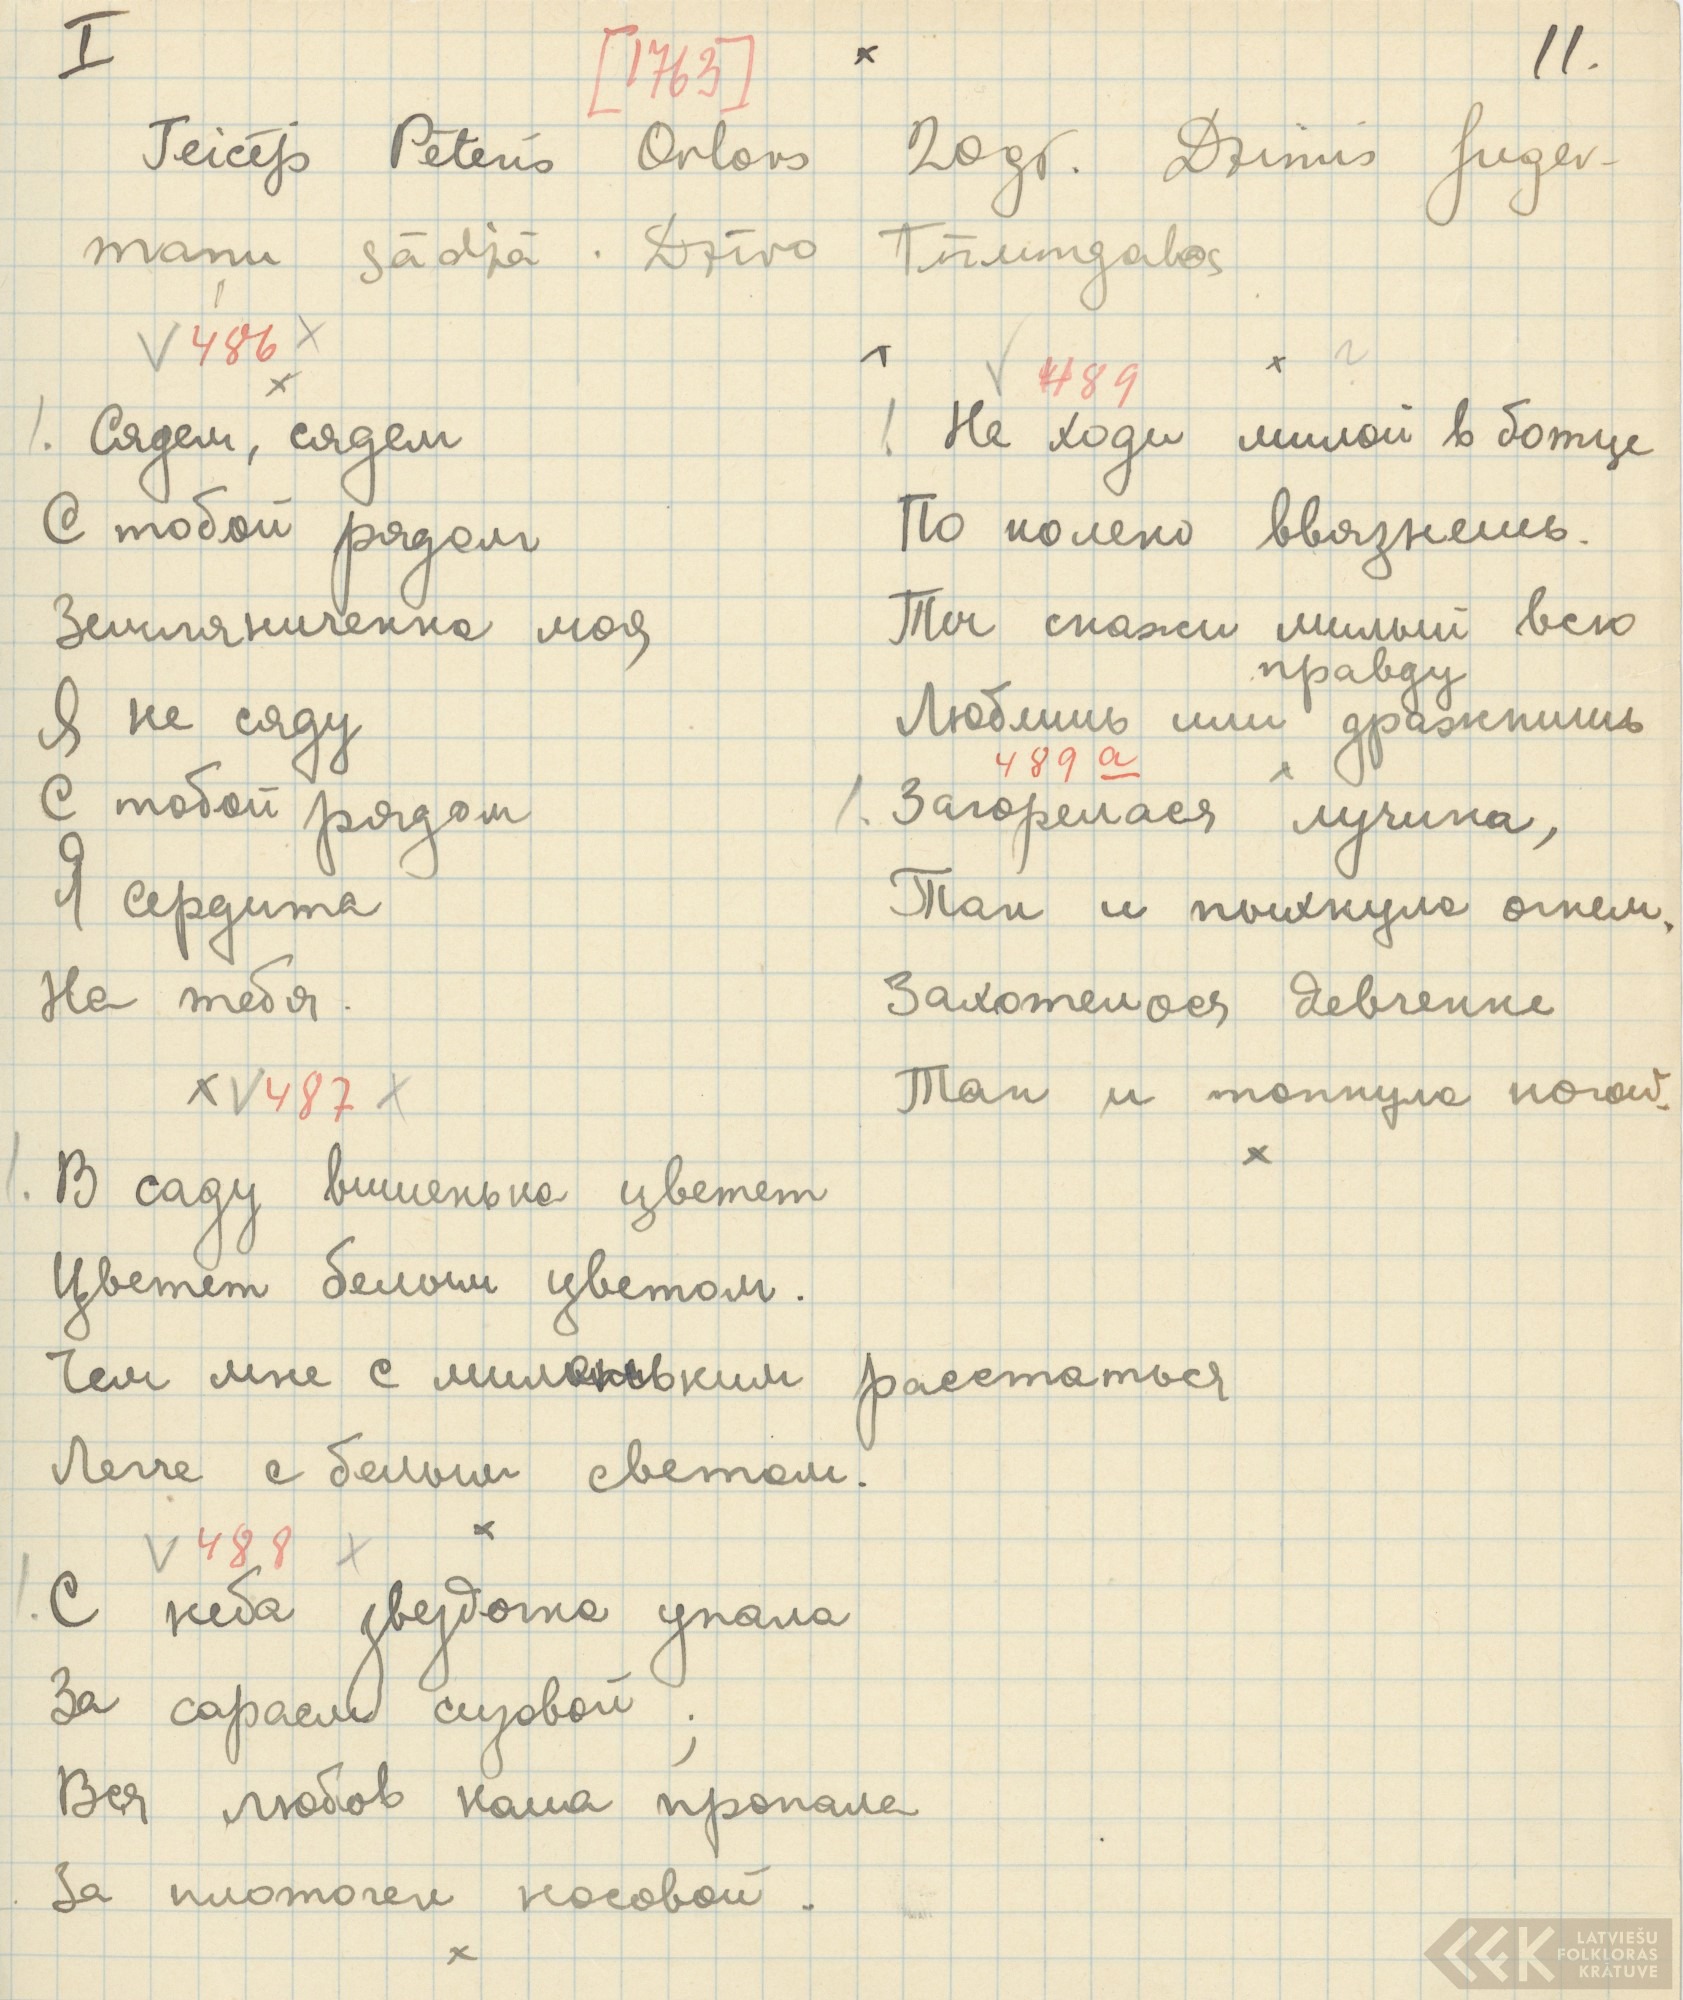 I
[1763]
11.
Teicējs Pēteris Orlovs 20 g. Dzimis Juger-
maņu sādžā. Dzīvo Tīlungalos
486
1. Сядем, сядем
С тобой рядом
Земляниченка моя
Я не сяду
С тобой рядом
Я сердита
На тебя.
487
1. В саду вишенька цветет
Цветет белым цветом.
Чем мне с миленьким расстаться
Легче с белым светом.
488
1. С неба звездотка упала
За сараем сизовой;
Вся любов наша пропала
За плоточек носовой.
489
1. Не ходи милой в ботце
По колено ввязнешь.
Ты скажи милый всю
правду
Любишь или дражнишь
489 а
1. Загорелася лучина,
Так и пыхнула огнем.
Захотелося девченке
Так и топнула ногой.
LATVIEŠU
FOLKLORAS
KRĀTUVE